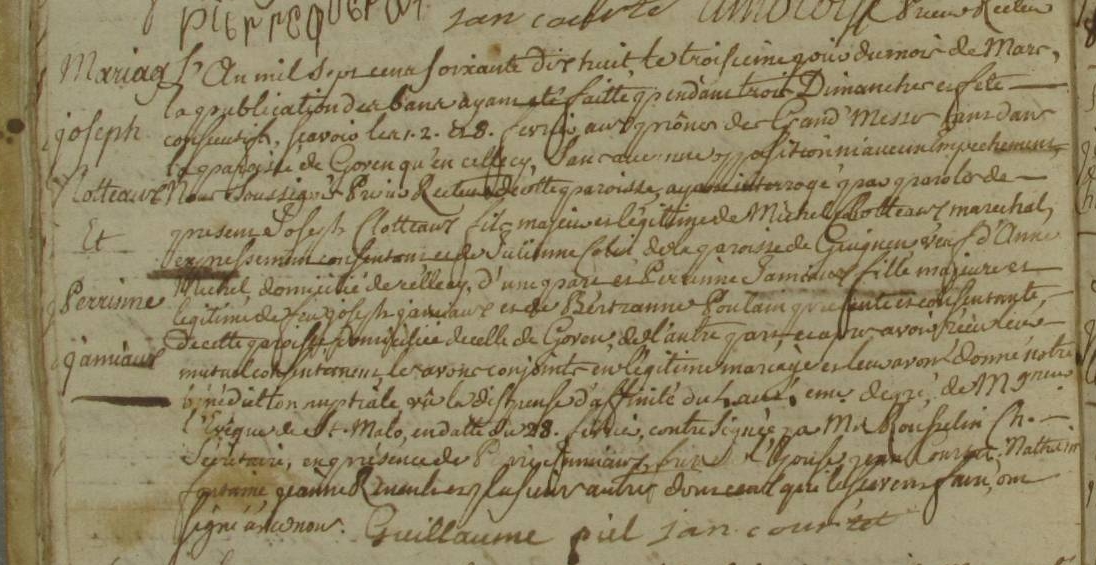 pierre
jan courté
Prieur Recteur
Mariage
joseph
Clotteaux
Et
Perrinne
janiaux
L'An mil sept cent soixante dix huit le troisième jour du mois de Mars,
la publication des bans ayant eté faitte pendant trois Dimanches et fête
consecutifs, scavoir les 1. 2. et 8. fevrier aux prônes des Grand Messes tant dans
la paroisse de Goven qu'en celle cy, sans aucune opposition ni aucun empechement
Nous Soussigné Prieur Recteur de cette paroisse, ayant interrogé par parolles de
present Joseph Clotteaux fils majeur et légitime de Michel Clotteaux marechal,
expressement consentant et de Julienne de la paroisse de Guignen veuf d'Anne
Michel domicilié de celle cy, d'une part et Perrinne Janiaux fille majeure et
legitime de feu joseph janiaux et de Bertranne Poulain presente et consentante,
de cette paroisse domiciliée de celle de Goven, de l'autre part et apres avoir receu leur
mutuel consentement les avons conjoints en légitime mariage et leur avons donné notre
bénédiction nuptiale vû la dispense d'affinité du degré, de Mgneur
l'Evêque de St. Malo, en datte du 28. fevrier, contre signée par Mr. Rousselin Ch.
Secrétaire, en presence de Pierre Janiaux, jean Courtet. Mathurin
fontaine jeanne et plusieurs autres dont ceux qui le scavent faire, ont
signé avec nous. Guillaume piel jan courtet